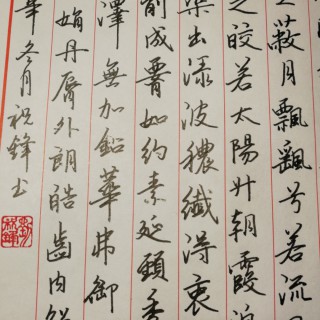 蔽月飄飄兮若流
之皎若太陽升朝霞迫
渠出渌波穠纖得衷
削成腰如約素延頸秀
澤無加鉛華弗御
娟丹脣外朗皓齒内鮮
冬月祝鋒書